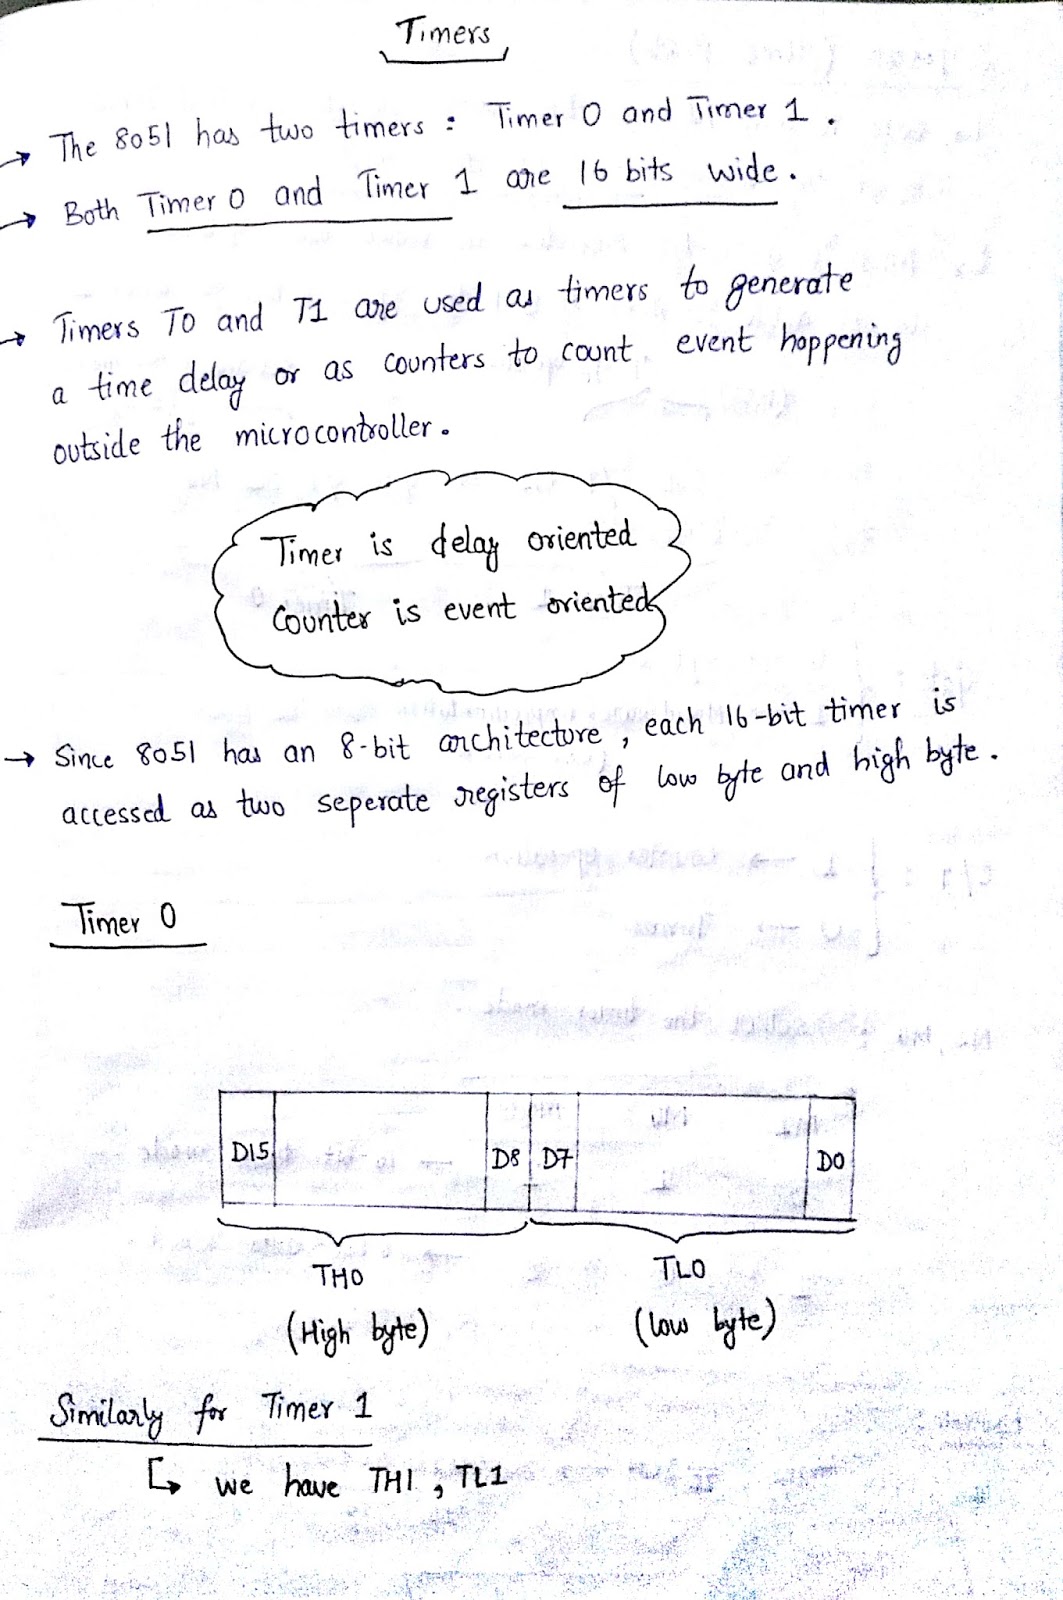 Timers
→ The 8051 has two timers : Timer 0 and Timer 1 .
→ Both Timer 0 and Timer 1 are 16 bits wide .
→ Timers T0 and T1 are used as timers to generate
a time delay or as counters to count event happening
outside the microcontroller .
Timer is delay oriented
Counter is event oriented
→ Since 8051 has an 8-bit architecture , each 16-bit timer is
accessed as two seperate registers of low byte and high byte .
Timer 0
D15 D8 D7 D0
TH0 TL0
(High byte) (low byte)
Similarly for Timer 1
↳ we have TH1 , TL1